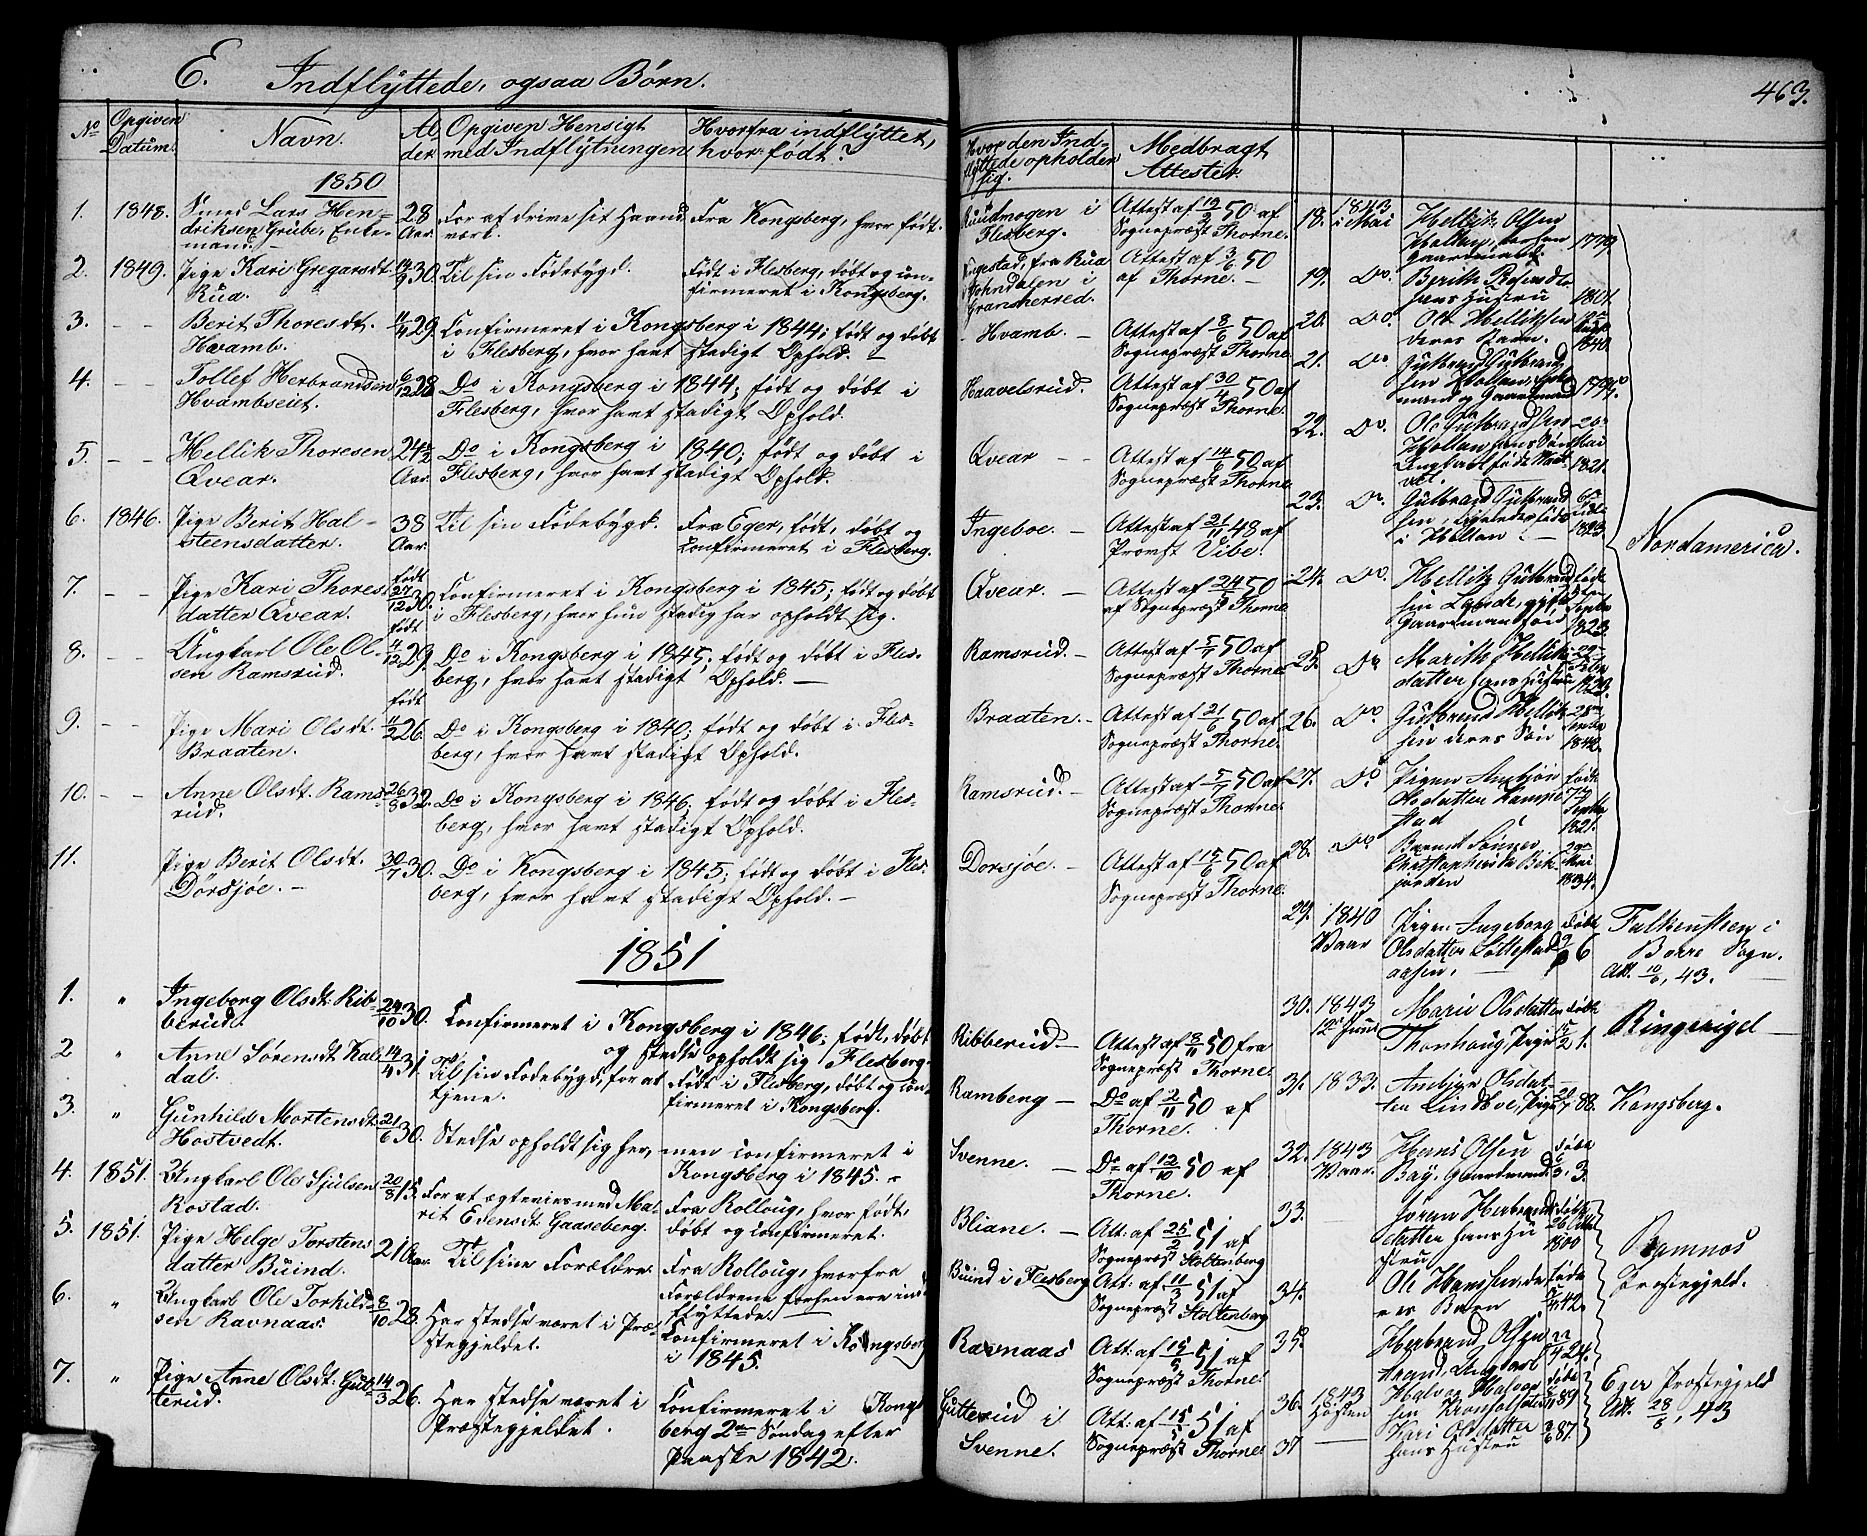 E. Indflyttede, ogsaa Børn.
No
Opgiven Datum.
Navn.
Alder
Opgiven Hensigt med Indflytningen
Hvorfra indflyttet, hvor født?
Hvor den Indflyttede opholder sig.
Medbragt Attester.
463.
1850
1. 1848. Smed Lars Hendriksen Grube, Enkemand. 28 Aar. For at drive sit Haandværk. Fra Kongsberg, hvor født. Ruudmogen i Flesberg. Attest af 19/2 50 af Sognepræst Thorne.
2. 1849. Pige Kari Gregarsdt. Rua. 30. Til sin Fødebygd. Født i Flesberg, døbt og confirmeret i Kongsberg. fra Rua i Johndalen i Gransherred. Attest af 3/6 50 af Thorne.
3. - - Berit Thoresdt. Hvamb. 11/4 29. Confirmeret i Kongsberg i 1844; født og døbt i Flesberg, hvor havt stadigt Ophold. Hvamb. Attest af 8/6 50 af Sognepræst Thorne
4. - - Tollef Herbrandsen Hvambseiet. 6/12 28 Do i Kongsberg i 1844; født og døbt i Flesberg, hvor havt stadigt Ophold. Haavelsrud. Attest af 30/4 50 af Sognepræst Thorne.
5. - - Hellik Thoresen Qvear. 24½ Aar. Do i Kongsberg i 1840; født og døbt i Flesberg, hvor havt stadigt Ophold. Qvear Attest af 14/6 50 af Sognepræst Thorne.
6. 1846. Pige Berit Halsteensdatter. 38 Aar. Til sin Fødebygd. Fra Eger, født, døbt og confirmeret i Flesberg. Ingeboe. Attest af 21/11 48 af Provst Vibe.
7. - - Pige Kari Thoresdatter Qvear. født 27/12 30. Confirmeret i Kongsberg i 1845; født og døbt i Flesberg, hvor hun stadig har opholdt sig. Qvear. Attest af 24/5 50 af Sognepræst Thorne
8. - - Ungkarl Ole Olsen Ramsrud. født 4/12 29. Do i Kongsberg i 1845; født og døbt i Flesberg, hvor havt stadigt Ophold. Ramsrud. Attest af 5/7 50 af Sognepræst Thorne
9. - - Pige Mari Olsdt. Braaten. født 11/2 26. Do i Kongsberg i 1840; født og døbt i Flesberg, hvor havt stadigt Ophold. Braaten. Attest af 21/6 50 af Sognepræst Thorne.
10. - - Anne Olsdt. Ramsrud. 26/8 32. Do i Kongsberg i 1846; født og døbt i Flesberg, hvor havt stadigt Ophold. Ramsrud. Attest af 5/7 50 af Sognepræst Thorne.
11. Pige Berit Olsdt. Dorsjøe. 30/7 30. Do i Kongsberg i 1845; født og døbt i Flesberg, hvor havt stadigt Ophold. Dorsjøe Attest af 15/6 50 af Sognepræst Thorne.
1851
1. " Ingeborg Olsdt. Ribberud. 24/10 30. Confirmeret i Kongsberg i 1846; født, døbt og stedse opholdt sig i Flesberg. Ribberud. Attest af 8/11 50 fra Sognepræst Thorne.
2 " Anne Sørensdt. Kaldal. 14/4 31. Til sin Fødebygd, for at tjene. Født i Flesberg, døbt og confirmeret i Kongsberg. Ramberg Do af 2/11 50 af Thorne.
3. " Gunhild Mortensdt. Hostvedt. 21/6 30. Stedse opholdt sig her, men confirmeret i Kongsberg i 1845. Svenne. Do af 12/10 50 af Thorne.
4. 1851. Ungkarl Ole Gjulsen Rostad. 20/8 15. For at ægtevies med Marit Edensdt. Gaaseberg. Fra Rolloug, hvor født, døbt og confirmeret. Bliane. Att. af 25/2 51 af Sognepræst Stoltenberg
5. 1851. Pige Helge Torstensdatter Buind. 21 Aar. Til sine Forældre. Fra Rolloug, hvorfra Forældrene forhen ere indflyttede. Buind i Flesberg Att. af 11/3 51 af Sognepræst Stoltenberg
6. " Ungkarl Ole Torkildsen Ravnaas. 8/10 28. Har stedse været i Præstegjeldet. Confirmeret i Kongsberg i 1845. Ravnaas Att. af 15/5 51 af Sognepræst Thorne.
7. " Pige Anne Olsdt. Gutterud. 14/3 26. Har stedse været i Præstegjeldet. Confirmeret i Kongsberg 2den Søndag efter Paaske 1842. Gutterud i Svenne. Att. af 15/5 51 af Sognepræst Thorne.
18. 1843 i Mai Hellik Olsen 1779.
19. Do. Berith hans Hustru 1801.
20. Do. Ole Helliksen deres Barn. 1840.
21. Do Gulbrand Gulbrandsen
22. Do. Ole Gulbrandsen hans Søn 1821.
23. Do. Gulbrand Gulbrandsen 1823
24. Do. Hellik Gulbrandsen gift Gaardmand født 1823
25. Do Marith Helliksdatter hans Hustru
26. Do Gulbrand Helliksen deres Søn 1842.
27. Do Pigen Olsdatter født 1821.
28. Do Barnet 1834.
Nordamerica.
29. 1840 Vaar Pigen Ingeborg Olsdatter Falkensteen i Borre Sogn. Att. 10/6, 43.
30. 1843 Marie Olsdatter Thonhoug, Pige Ringerige
31. 1833. Olsdatter Lindboe, Pige 88. Kongsberg.
32. 1843 Vaar. Hans Olsen Bay, Gaardmand
33. Herbrandsdatter hans Hustru 1800
34. Ole Hanssen, deres Barn 42.
35. Herbrand Olsen Ungkarl 24.
Ramnæs Præstegjeld.
36. 1843 Høsten Halvor Halvorsen 89
37 — Kari Olsdatter hans Hustru 87.
Eger Præstegjeld Att. 28/8, 43